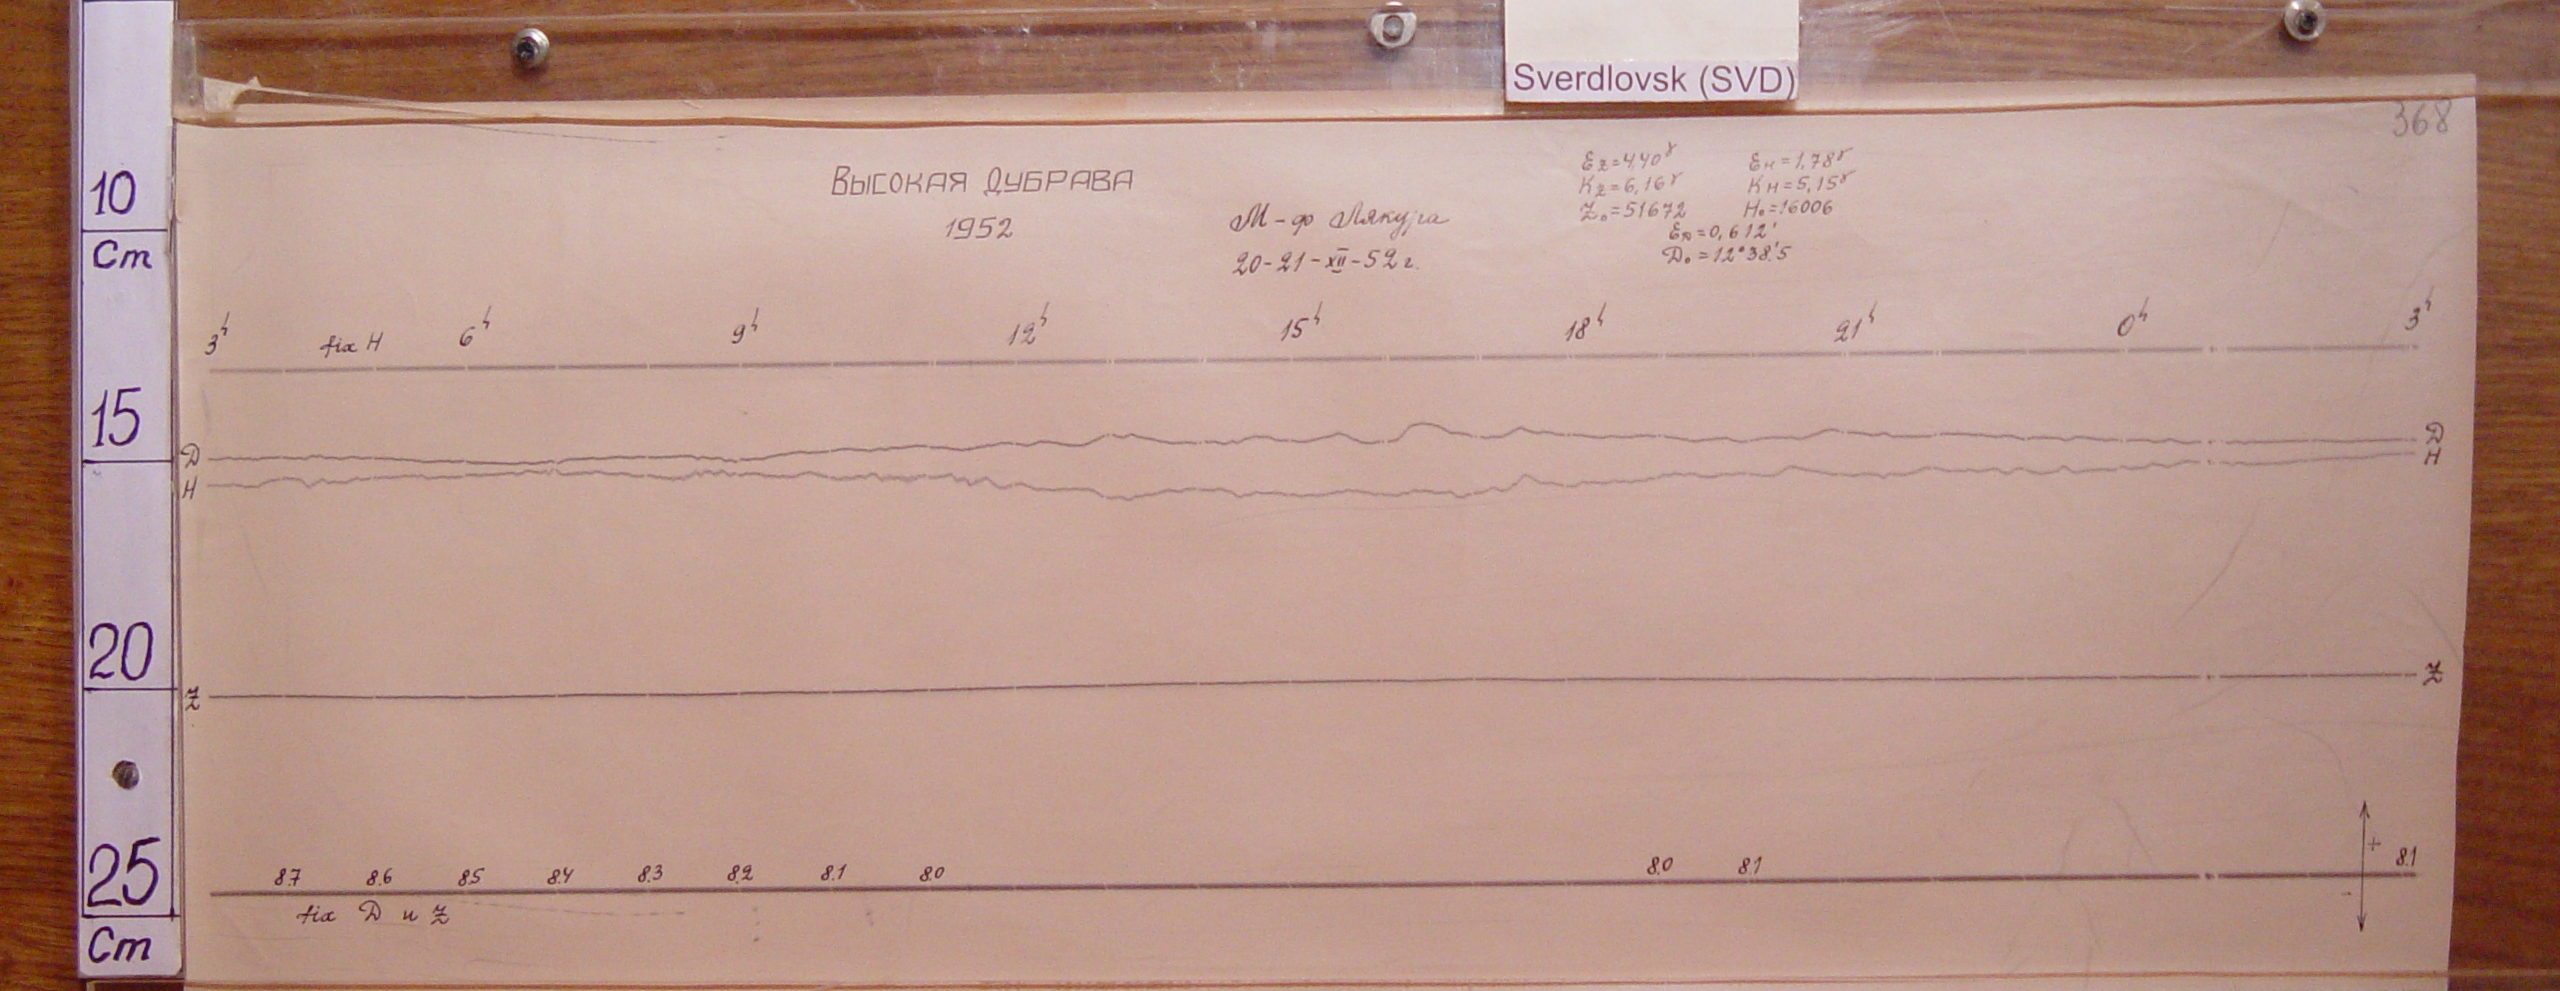 Sverdlovsk (SVD)
368
Высокая Дубрава
1952
М-ф Лякура
20-21-XII-52 г.
εz=4,40γ εH=1,78γ
Kz=6,16γ KH=5,15γ
Z₀=51672 H₀=16006
εD=0,612'
D₀=12°38'.5
10
Cm
15
20
25
Cm
3h fix H 6h 9h 12h 15h 18h 21h 0h 3h
D D
H H
Z Z
8.7 8.6 8.5 8.4 8.3 8.2 8.1 8.0 8.0 8.1 8.1
fix D и Z
+
-